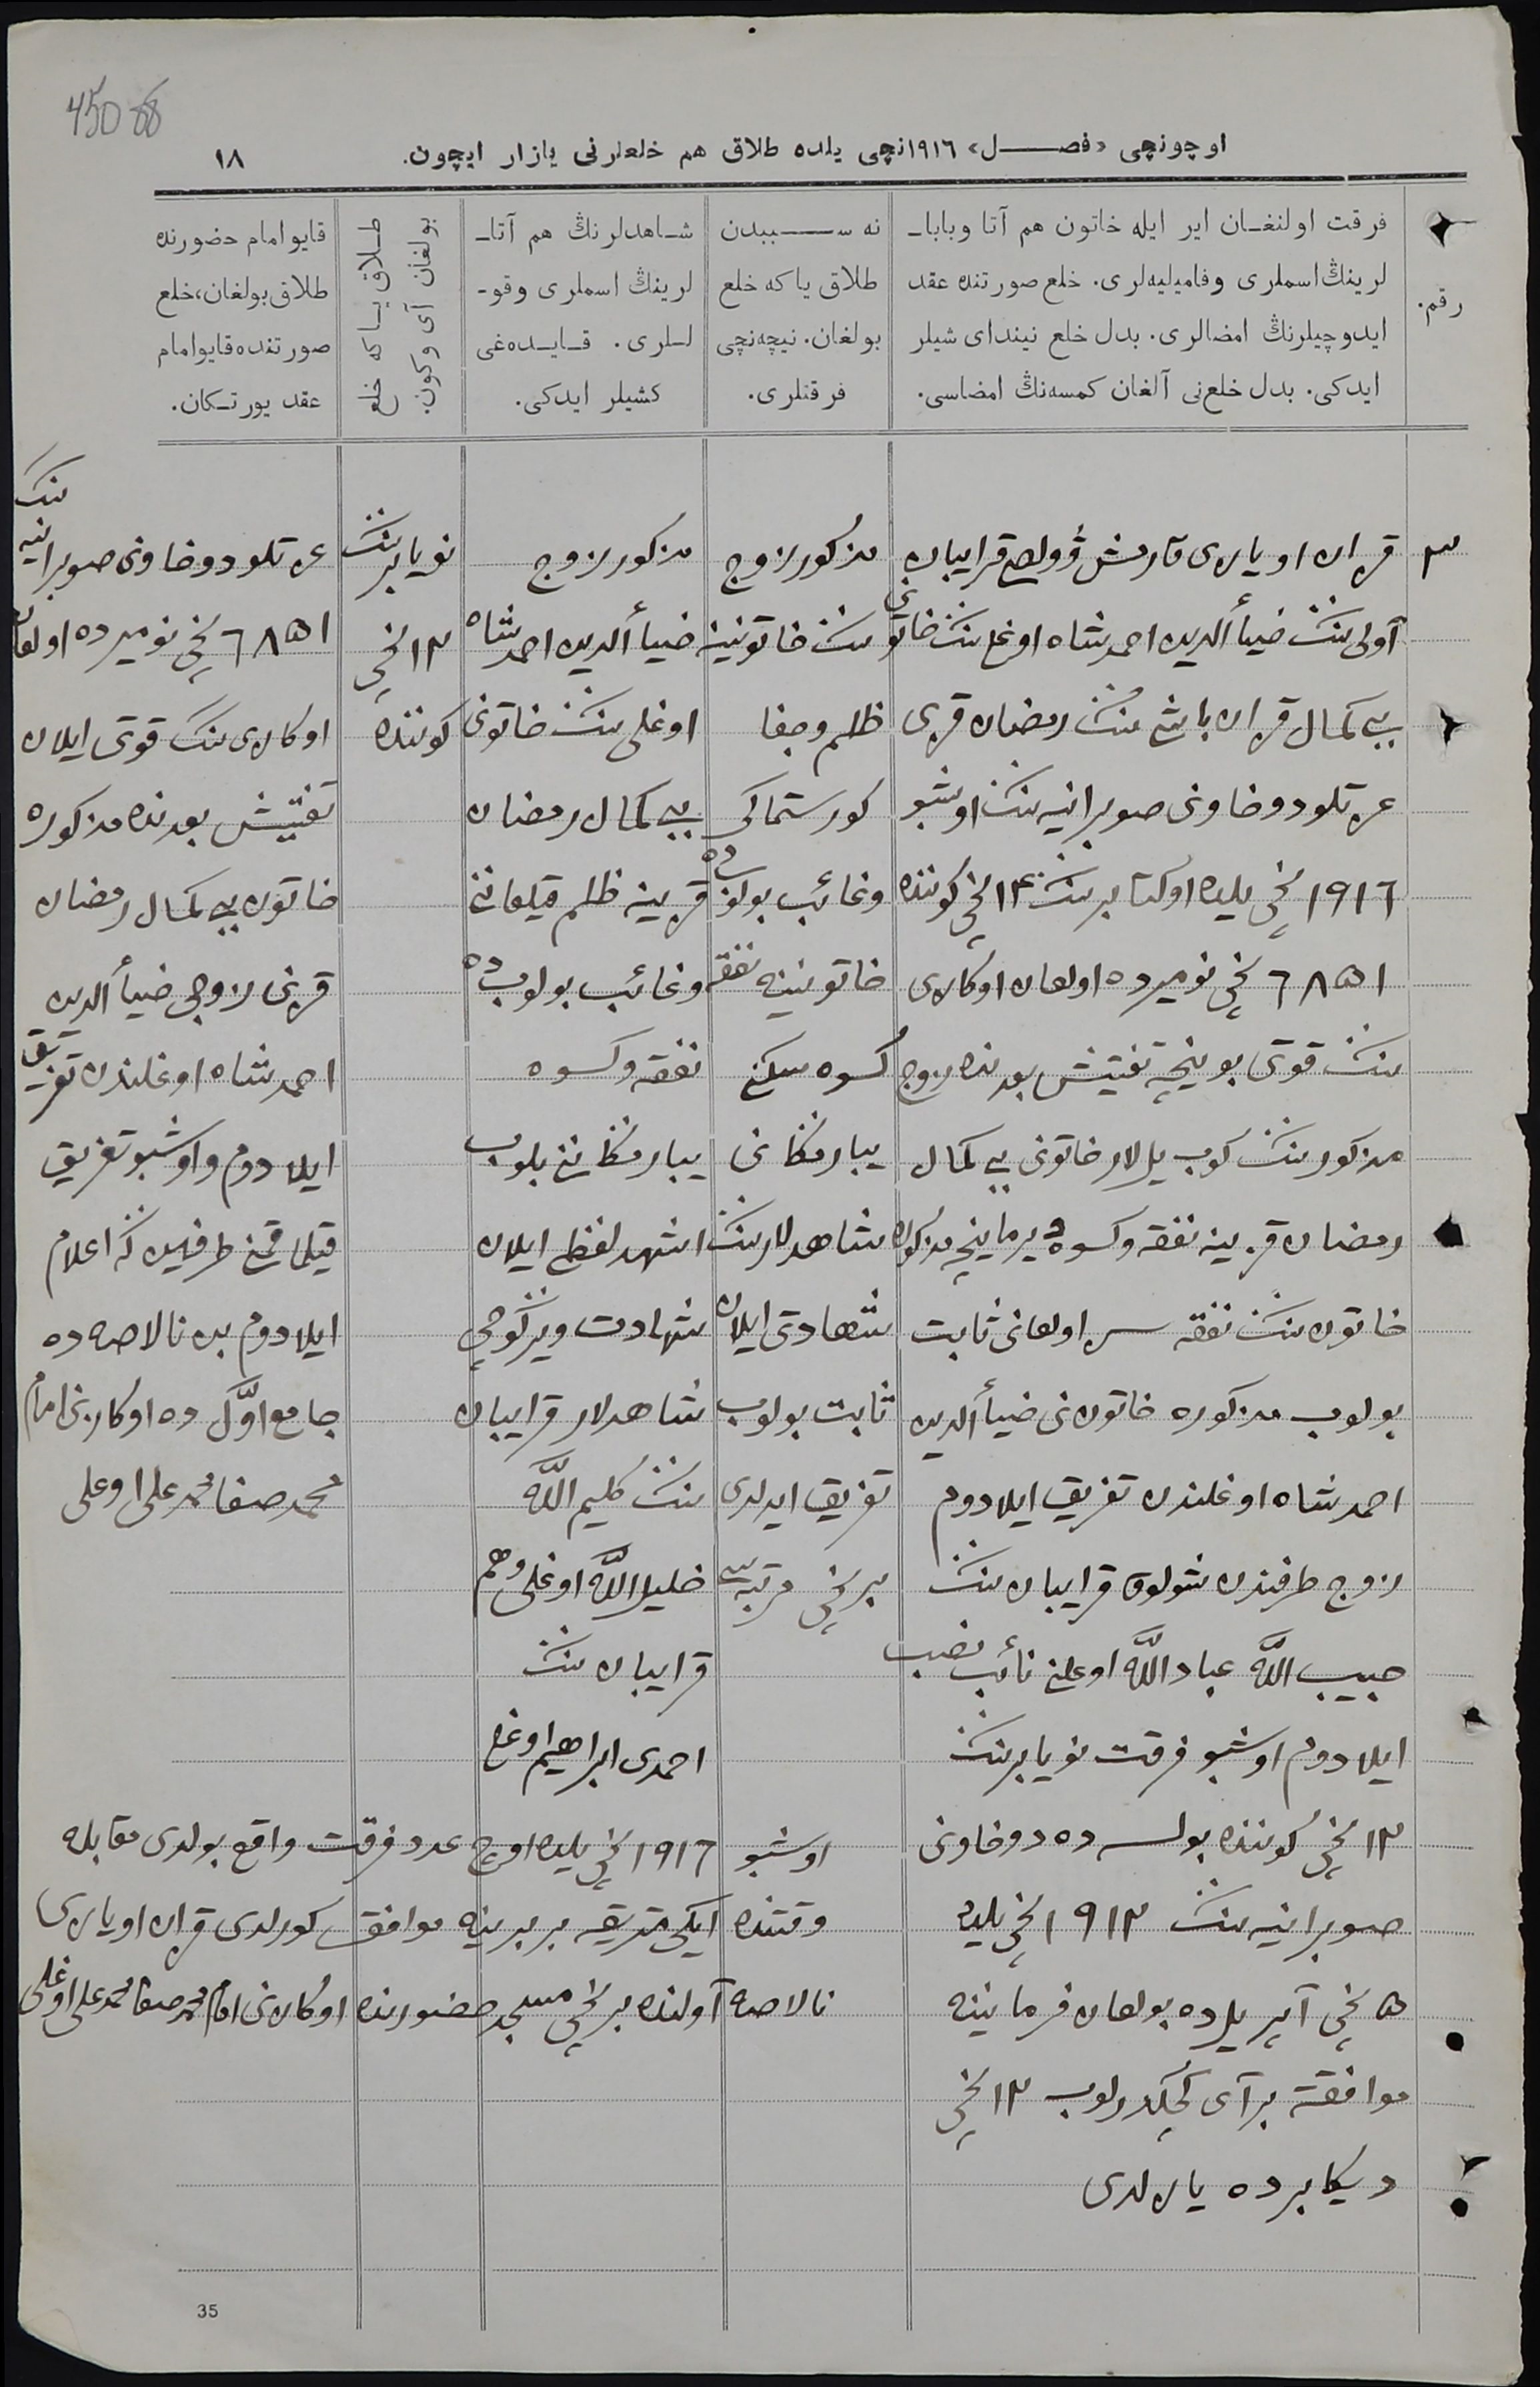 450 88
اوچونچی «فصل» ١٩١٦نچی یلده طلاق هم خلعلرنی یازار ایچون.
١٨
رقم.
فرقت اولنغان ایر ایله خاتون هم آتا وبابا-
لرینڭ اسملری وفامیلیه‌لری. خلع صورتنده عقد
ایدوچیلرنڭ امضالری. بدل خلع نیندای شیلر
ایدکی. بدل خلع‌نی آلغان کمسه‌نڭ امضاسی.
نه سببدن
طلاق یا که خلع
بولغان. نیچه‌نچی
فرقتلری.
شاهدلرنڭ هم آتا-
لرینڭ اسملری وقو-
للری. قایده‌غی
کشیلر ایدکی.
طلاق یا که خلع
بولغان آی وکون.
قایو امام حضورنده
طلاق بولغان، خلع
صورتنده قایو امام
عقد یورتکان.
٣
قزان اویازی قارمش وولص قرایبان
آولی ننک ضیأالدین احمدشاه اوغلی ننک خاتونی
بی کمال قزان باشی ننک رمضان قزی
عرتلو دوخاونی صوبرانیه ننک اوشبو
١٩١٦ نچی یلده اوکتابرننک ١٤ نچی کوننده
٦٨٥١ نچی نومیرده اولعان اوکازی
ننک قوتی بوینچه تفتیش بعدنده زوج
مذکورننک کوب یللار خاتونی بی کمال
رمضان قزینه نفقه وکسوه بیرماینچه مذکوره
خاتون ننک نفقه سز اولعانی ثابت
بولوب مذکوره خاتون نی ضیأالدین
احمدشاه اوغلندن تفریق ایلادوم
زوج طرفندن شولوق قرایبان ننک
حبیب الله عباد الله اوغلی نائب نصب
ایلادوم اوشبو فرقت نویابرننک
١٣ نچی کوننده بولسه ده دوخاونی
صوبرانیه ننک ١٩١٣ نچی یلده
٥ نچی آپریلده بولعان فرمانینه
موافقة بر آی کچکدرلوب ١٣ نچی
دیکابرده یازلدی
مذکور زوج
ننک خاتونینه
ظلم وجفا
کورستماکی
وغائب بولوبده
خاتونینه نفقه
کسوه سکنی
یبارمکانی
شاهدلارننک
شهادتی ایلان
ثابت بولوب
تفریق ایدلدی
برنچی مرتبه سی
مذکور زوج
ضیأالدین احمدشاه
اوغلی ننک خاتونی
بی کمال رمضان
قزینه ظلم قیلعانی
وغائب بولوبده
نفقه وکسوه
یبارمکانینی بلوب
اشهد لفظی ایلان
شهادت ویرکوچی
شاهدلار قرایبان
ننک کلیم الله
خلیل الله اوغلی وهم
قرایبان ننک
احمدی ابراهیم اوغلی
نویابرننک
١٣ نچی
کوننده
عرتلو دوخاونی صوبرانیه ننک
٦٨٥١ نچی نومیرده اولعان
اوکازی ننک قوتی ایلان
تفتیش بعدنده مذکوره
خاتون بی کمال رمضان
قزینی زوجی ضیأالدین
احمدشاه اوغلندن تفریق
ایلادوم و اوشبو تفریق
قیلماقمنی طرفین که اعلام
ایلادوم بن نالاصه ده
جامع اوّل ده اوکازنی امام
محمدصفا محمدعلی اوغلی
اوشبو ١٩١٦ نچی یلده اوچ عدد فرقت واقع بولدی مقابله
وقتنده ایکی متریقه بر برینه موافق کورلدی قزان اویازی
نالاصه آولنده برنچی مسجد حضورنده اوکازنی امام محمدصفا محمدعلی اوغلی
35